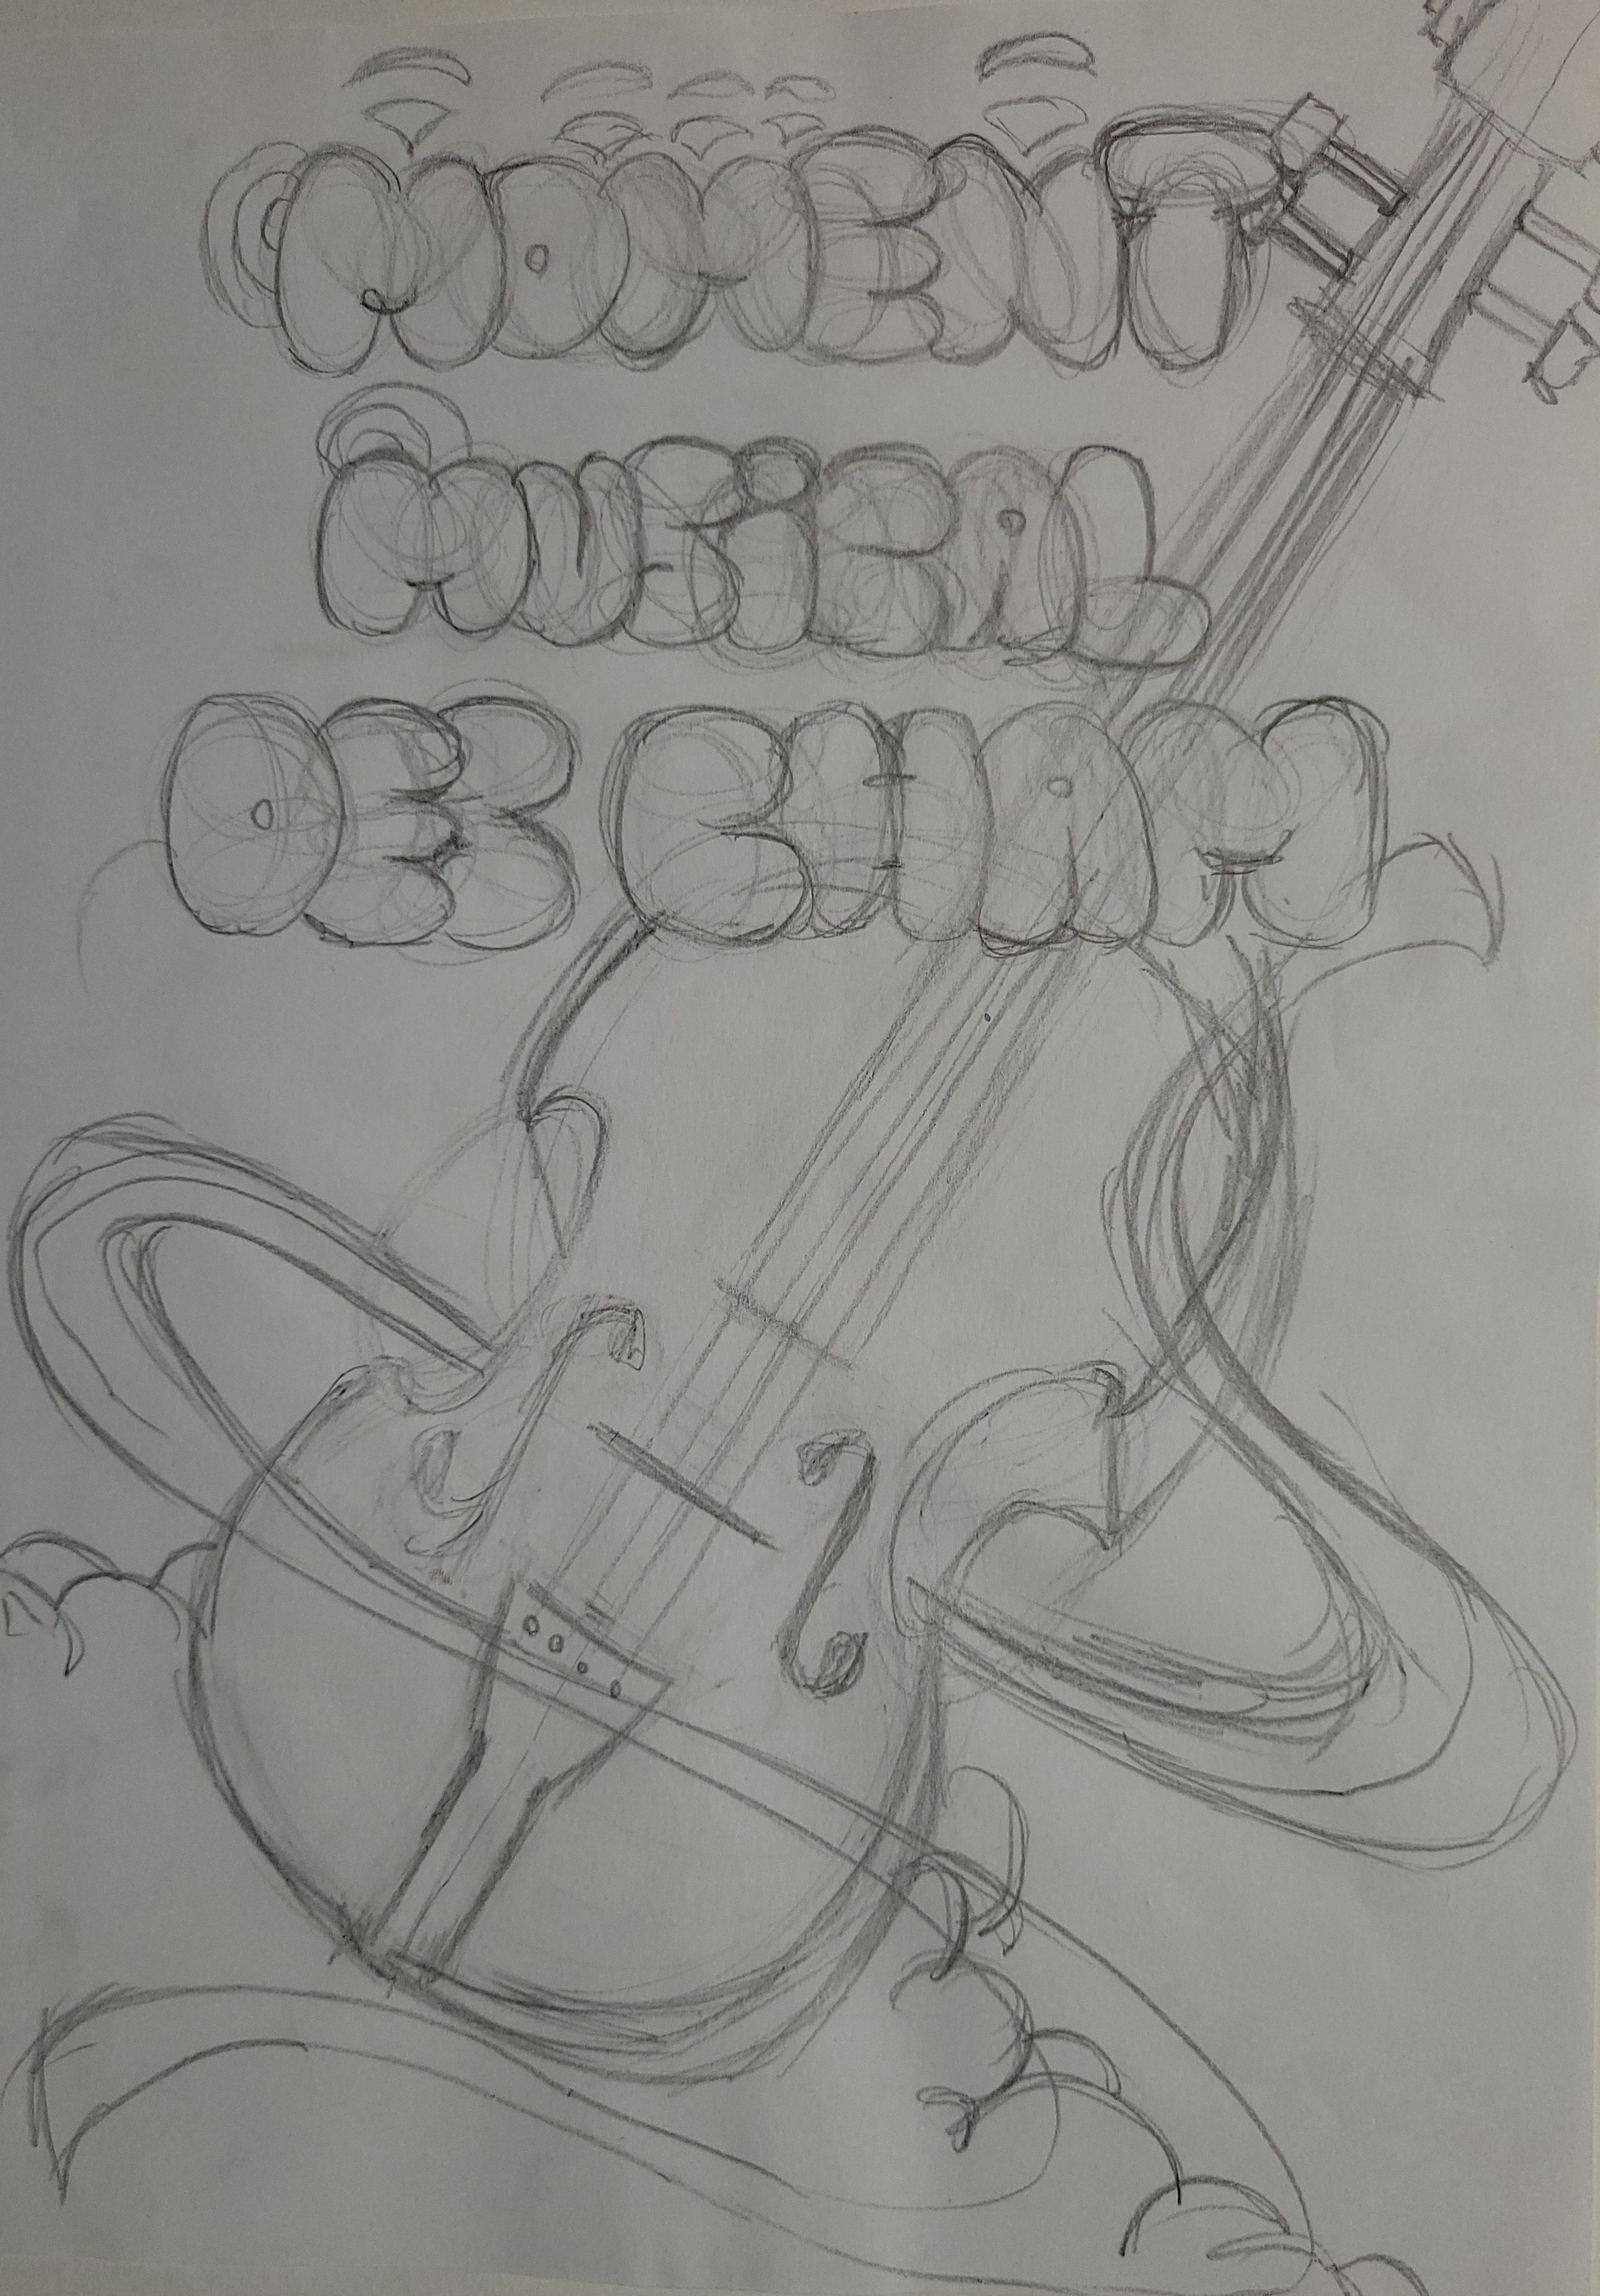 MOMENT
MUSiCAL
DES CHAM